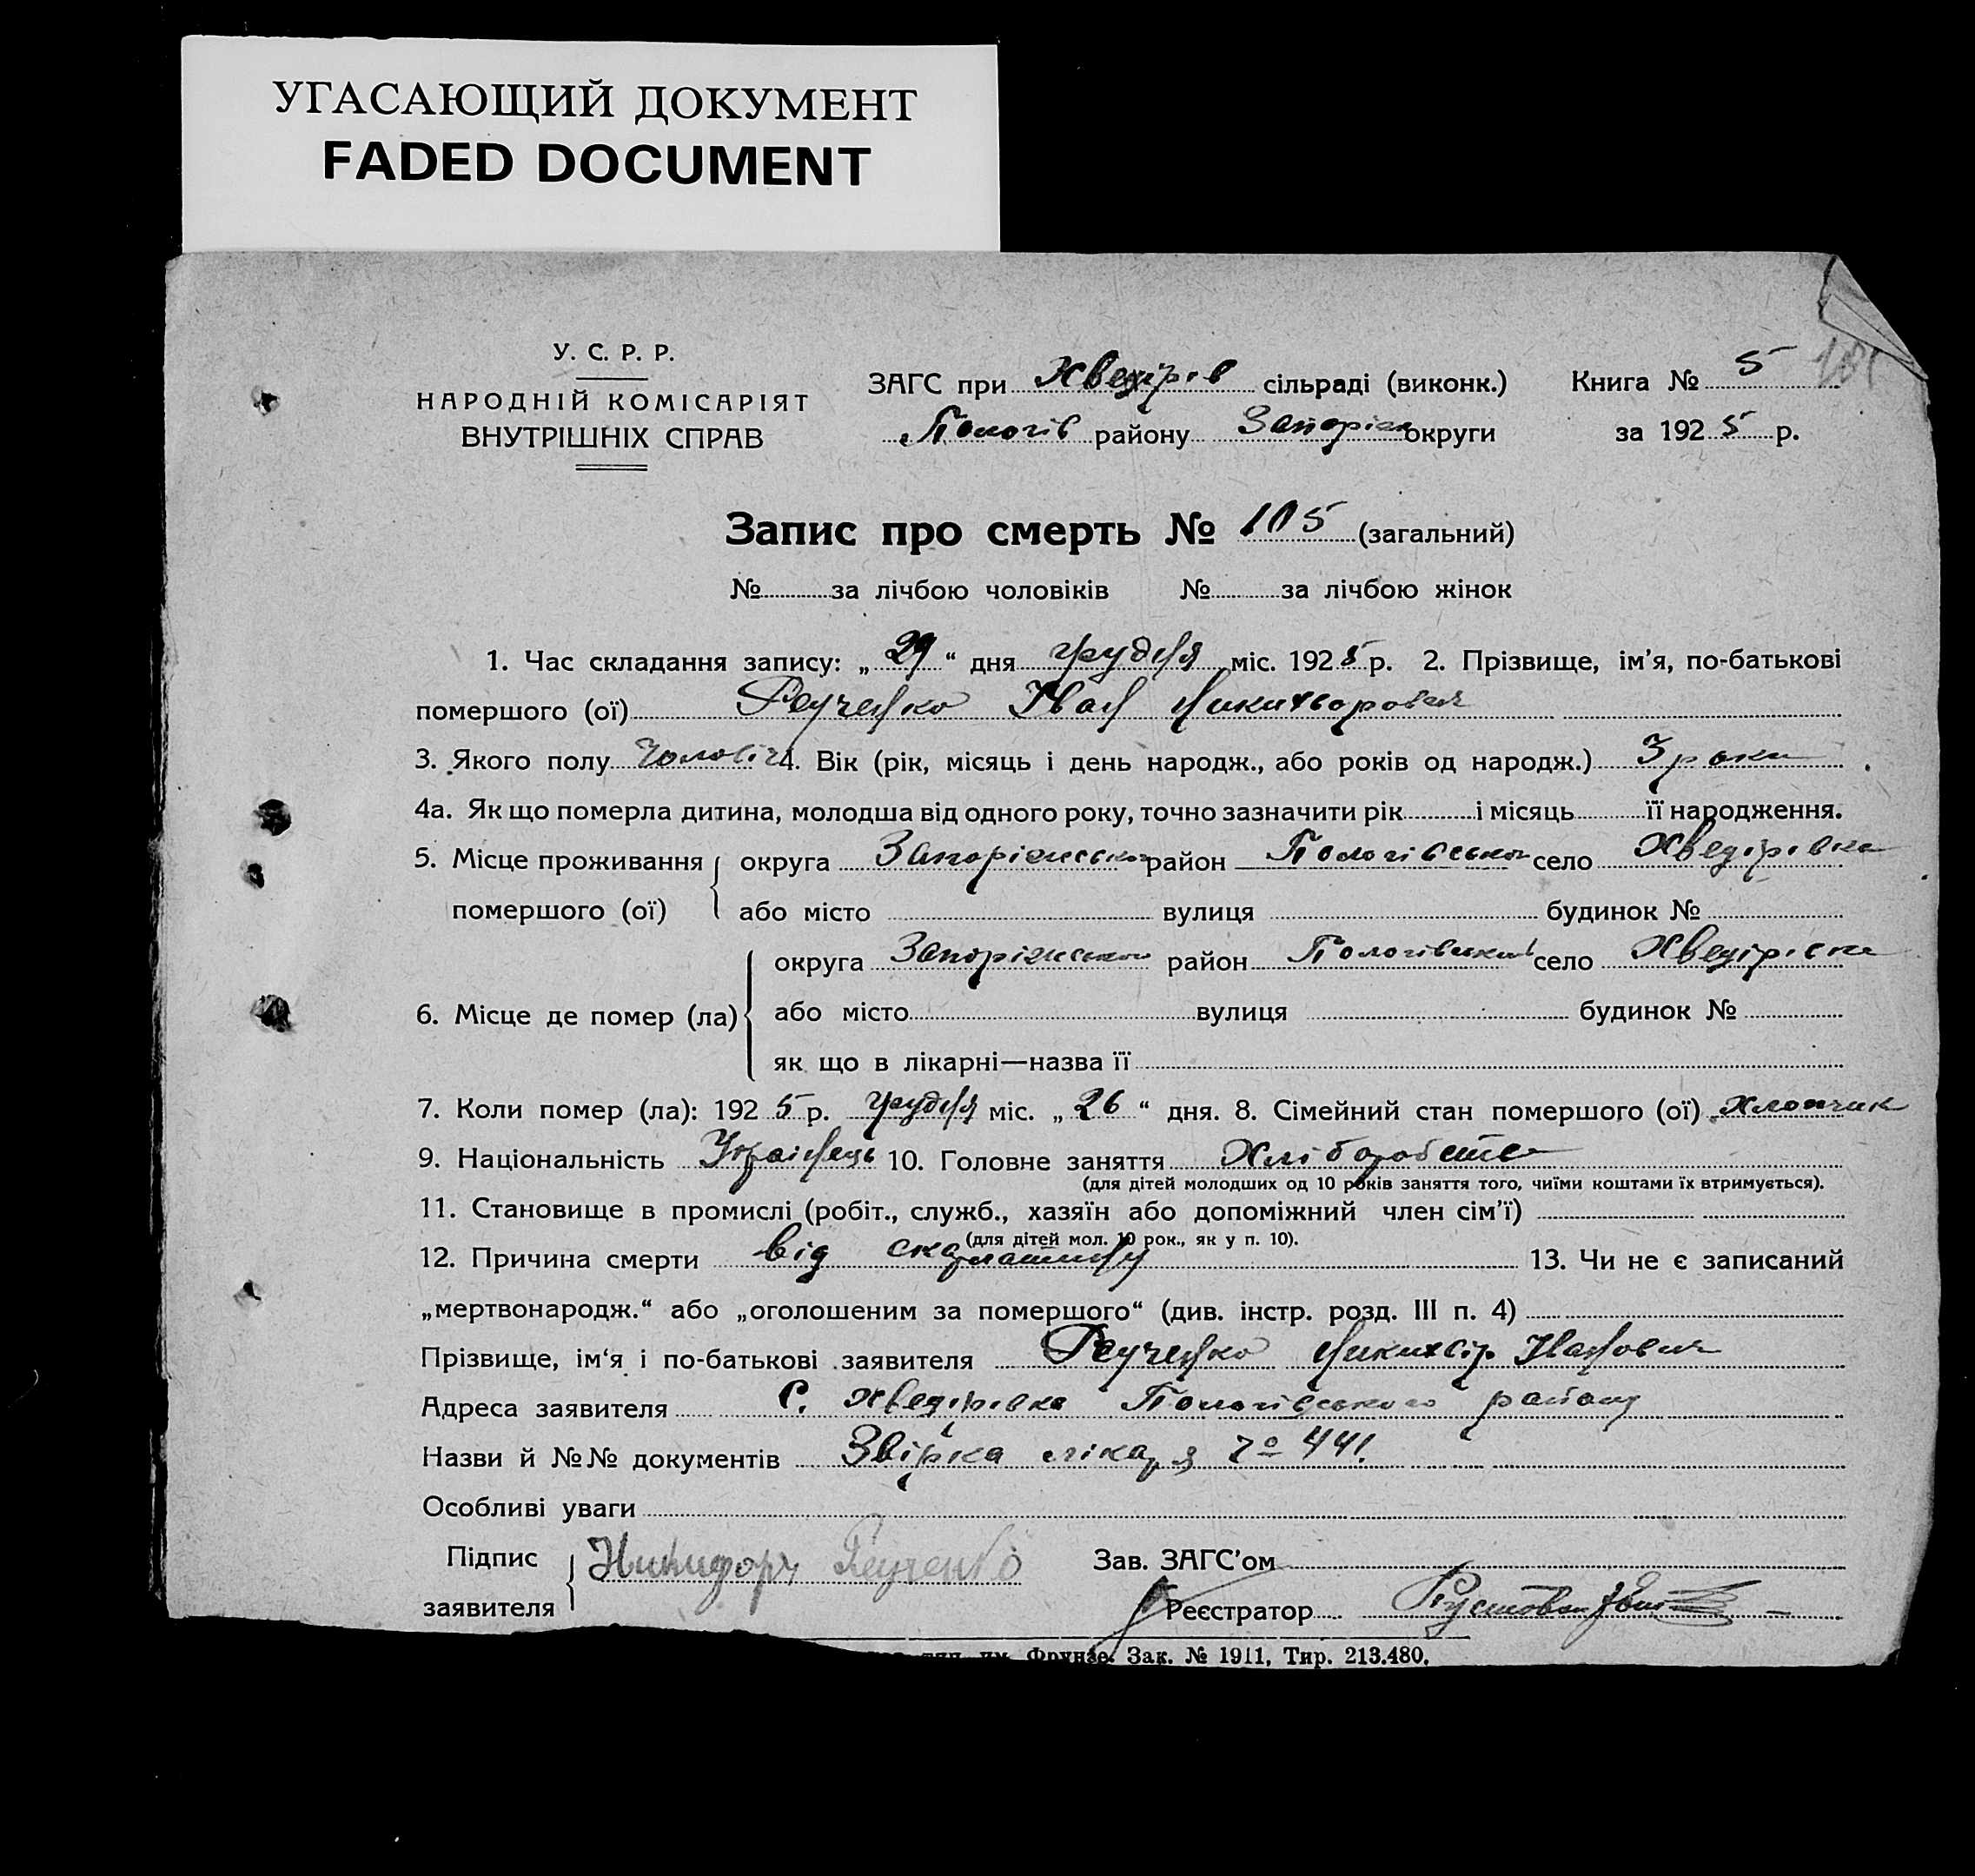 УГАСАЮЩИЙ ДОКУМЕНТ
FADED DOCUMENT
У. С. Р. Р.
НАРОДНІЙ КОМІСАРІЯТ
ВНУТРІШНІХ СПРАВ
ЗАГС при Хведірів сільраді (виконк.)
Пологів району Запоріж округи
Книга № 5
за 1925 р.
Запис про смерть № 105 (загальний)
№ за лічбою чоловіків № за лічбою жінок
1. Час складання запису: „29“ дня грудня міс. 1925 р. 2. Прізвище, ім’я, по-батькові
помершого (ої) Реученко Іван Микихворович
3. Якого полу чоловіч 4. Вік (рік, місяць і день народж., або років од народж.) 3 роки
4а. Як що померла дитина, молодша від одного року, точно зазначити рік і місяць її народження.
5. Місце проживання помершого (ої) округа Запоріжської район Пологівської село Хведірівка
або місто вулиця будинок №
6. Місце де помер (ла) округа Запоріжської район Пологівський село Хведірівка
або місто вулиця будинок №
як що в лікарні—назва її
7. Коли помер (ла): 1925 р. грудня міс. „26“ дня. 8. Сімейний стан помершого (ої) хлопчик
9. Національність Українець 10. Головне заняття Хліборобство
(для дітей молодших од 10 років заняття того, чиїми коштами їх втримується).
11. Становище в промислі (робіт., служб., хазяїн або допоміжний член сім’ї)
(для дітей мол. 10 рок., як у п. 10).
12. Причина смерти від скарлатини 13. Чи не є записаний
„мертвонародж.“ або „оголошеним за помершого“ (див. інстр. розд. III п. 4)
Прізвище, ім‘я і по-батькові заявителя Реученко Микихвір Іванович
Адреса заявителя С. Хведірівка Пологівського району
Назви й №№ документів Звірка лікаря № 441
Особливі уваги
Підпис заявителя Никифоръ Реученко
Зав. ЗАГС’ом
Реєстратор
им. Фрунзе. Зак. № 1911, Тир. 213.480.